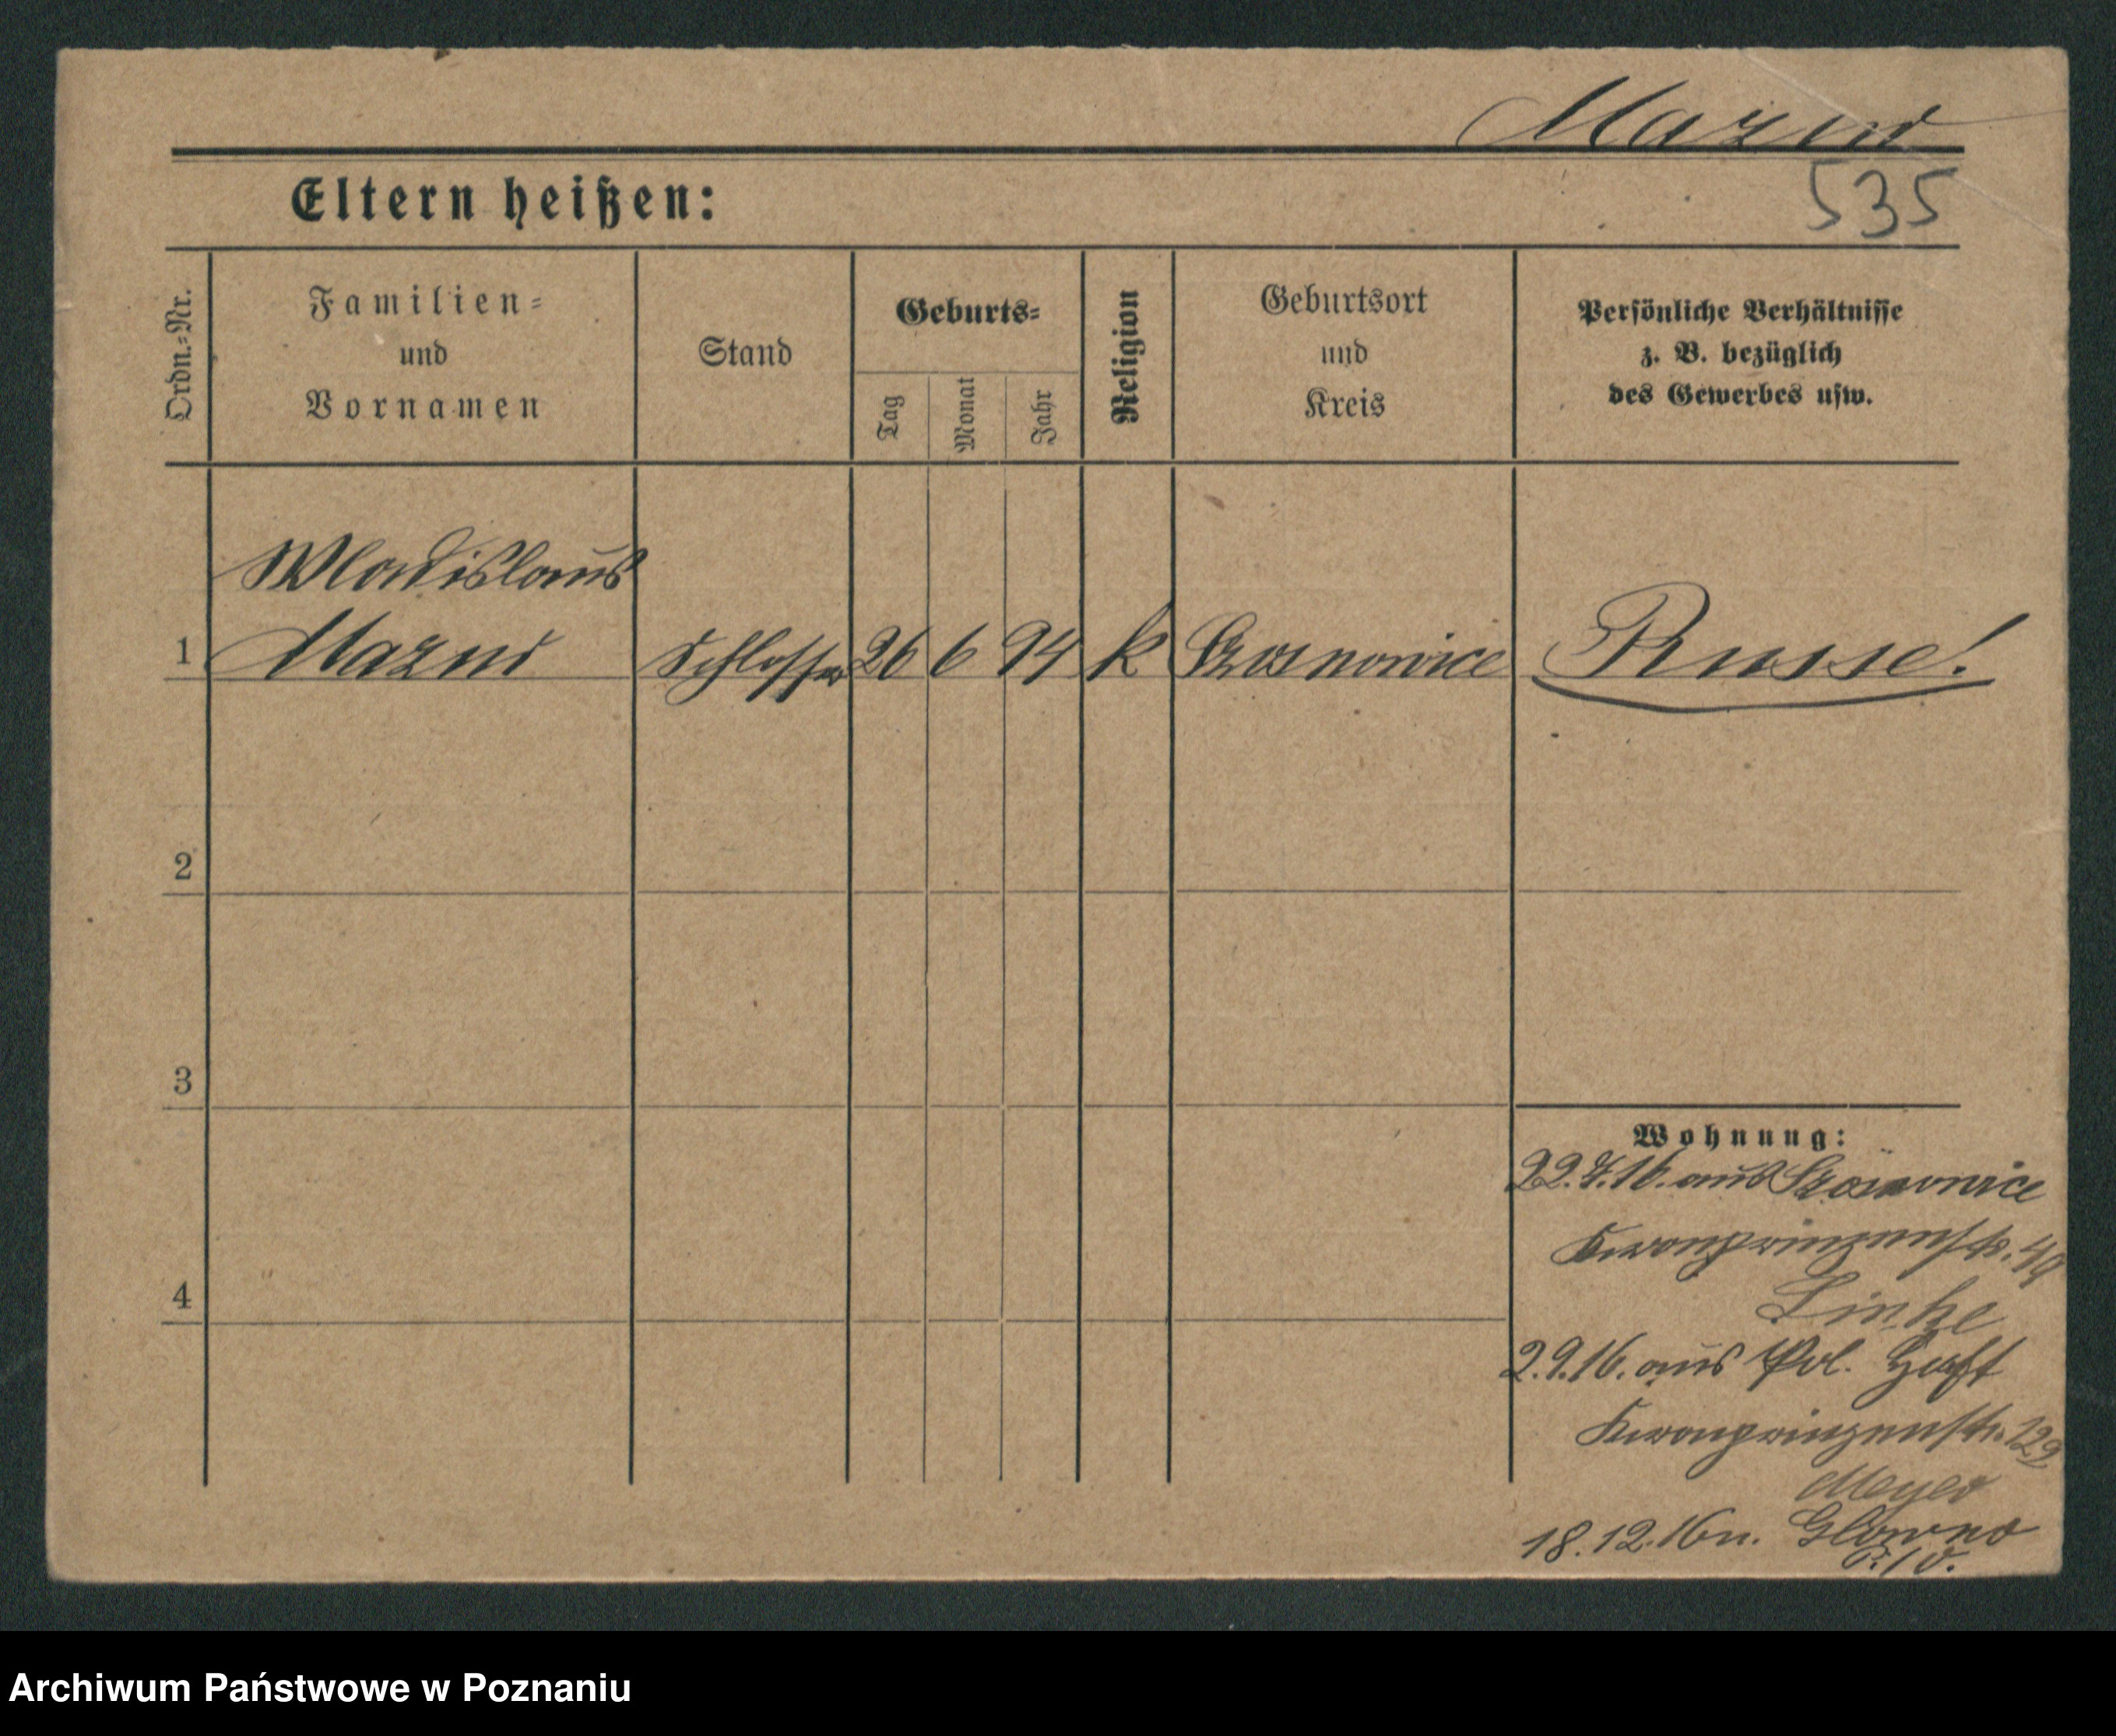 Mazur
535
Eltern heißen:
Ordn.=Nr.
Familien=
und
Vornamen
Stand
Geburts=
Tag
Monat
Jahr
Religion
Geburtsort
und
Kreis
Persönliche Verhältnisse
z. B. bezüglich
des Gewerbes usw.
Wladislaus
1 Mazur Schlosser 26 6 94 k Russe!
2
3
4
Wohnung:
aus
Kronprinzenstr.
Linke
2.9.16. aus Pol. Haft
Kronprinzenstr. 129
Meyer
18.12.16 n. Glowno
Archiwum Państwowe w Poznaniu